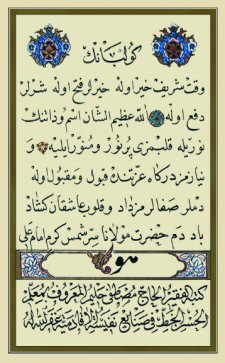 كولبانك
وقت شريف خير اوله خيرلر فتح اوله شرلر
دفع اوله الله عظيم الشان اسم ذاتنك
نوريله قلبمزى پرنور و منور ايليه و
نيازمز دركاه عزتنده قبول و مقبول اوله
دملر صفالر مزداد و قلوب عاشقان كشاد
باد دم حضرت مولانا سر شمس كرم امام على
هو
كتبه الفقير الحاج مصطفى حليم المعروف بمعلم
الحسن الخط فى صنايع نفيسة الاقاديمية غفر الله له